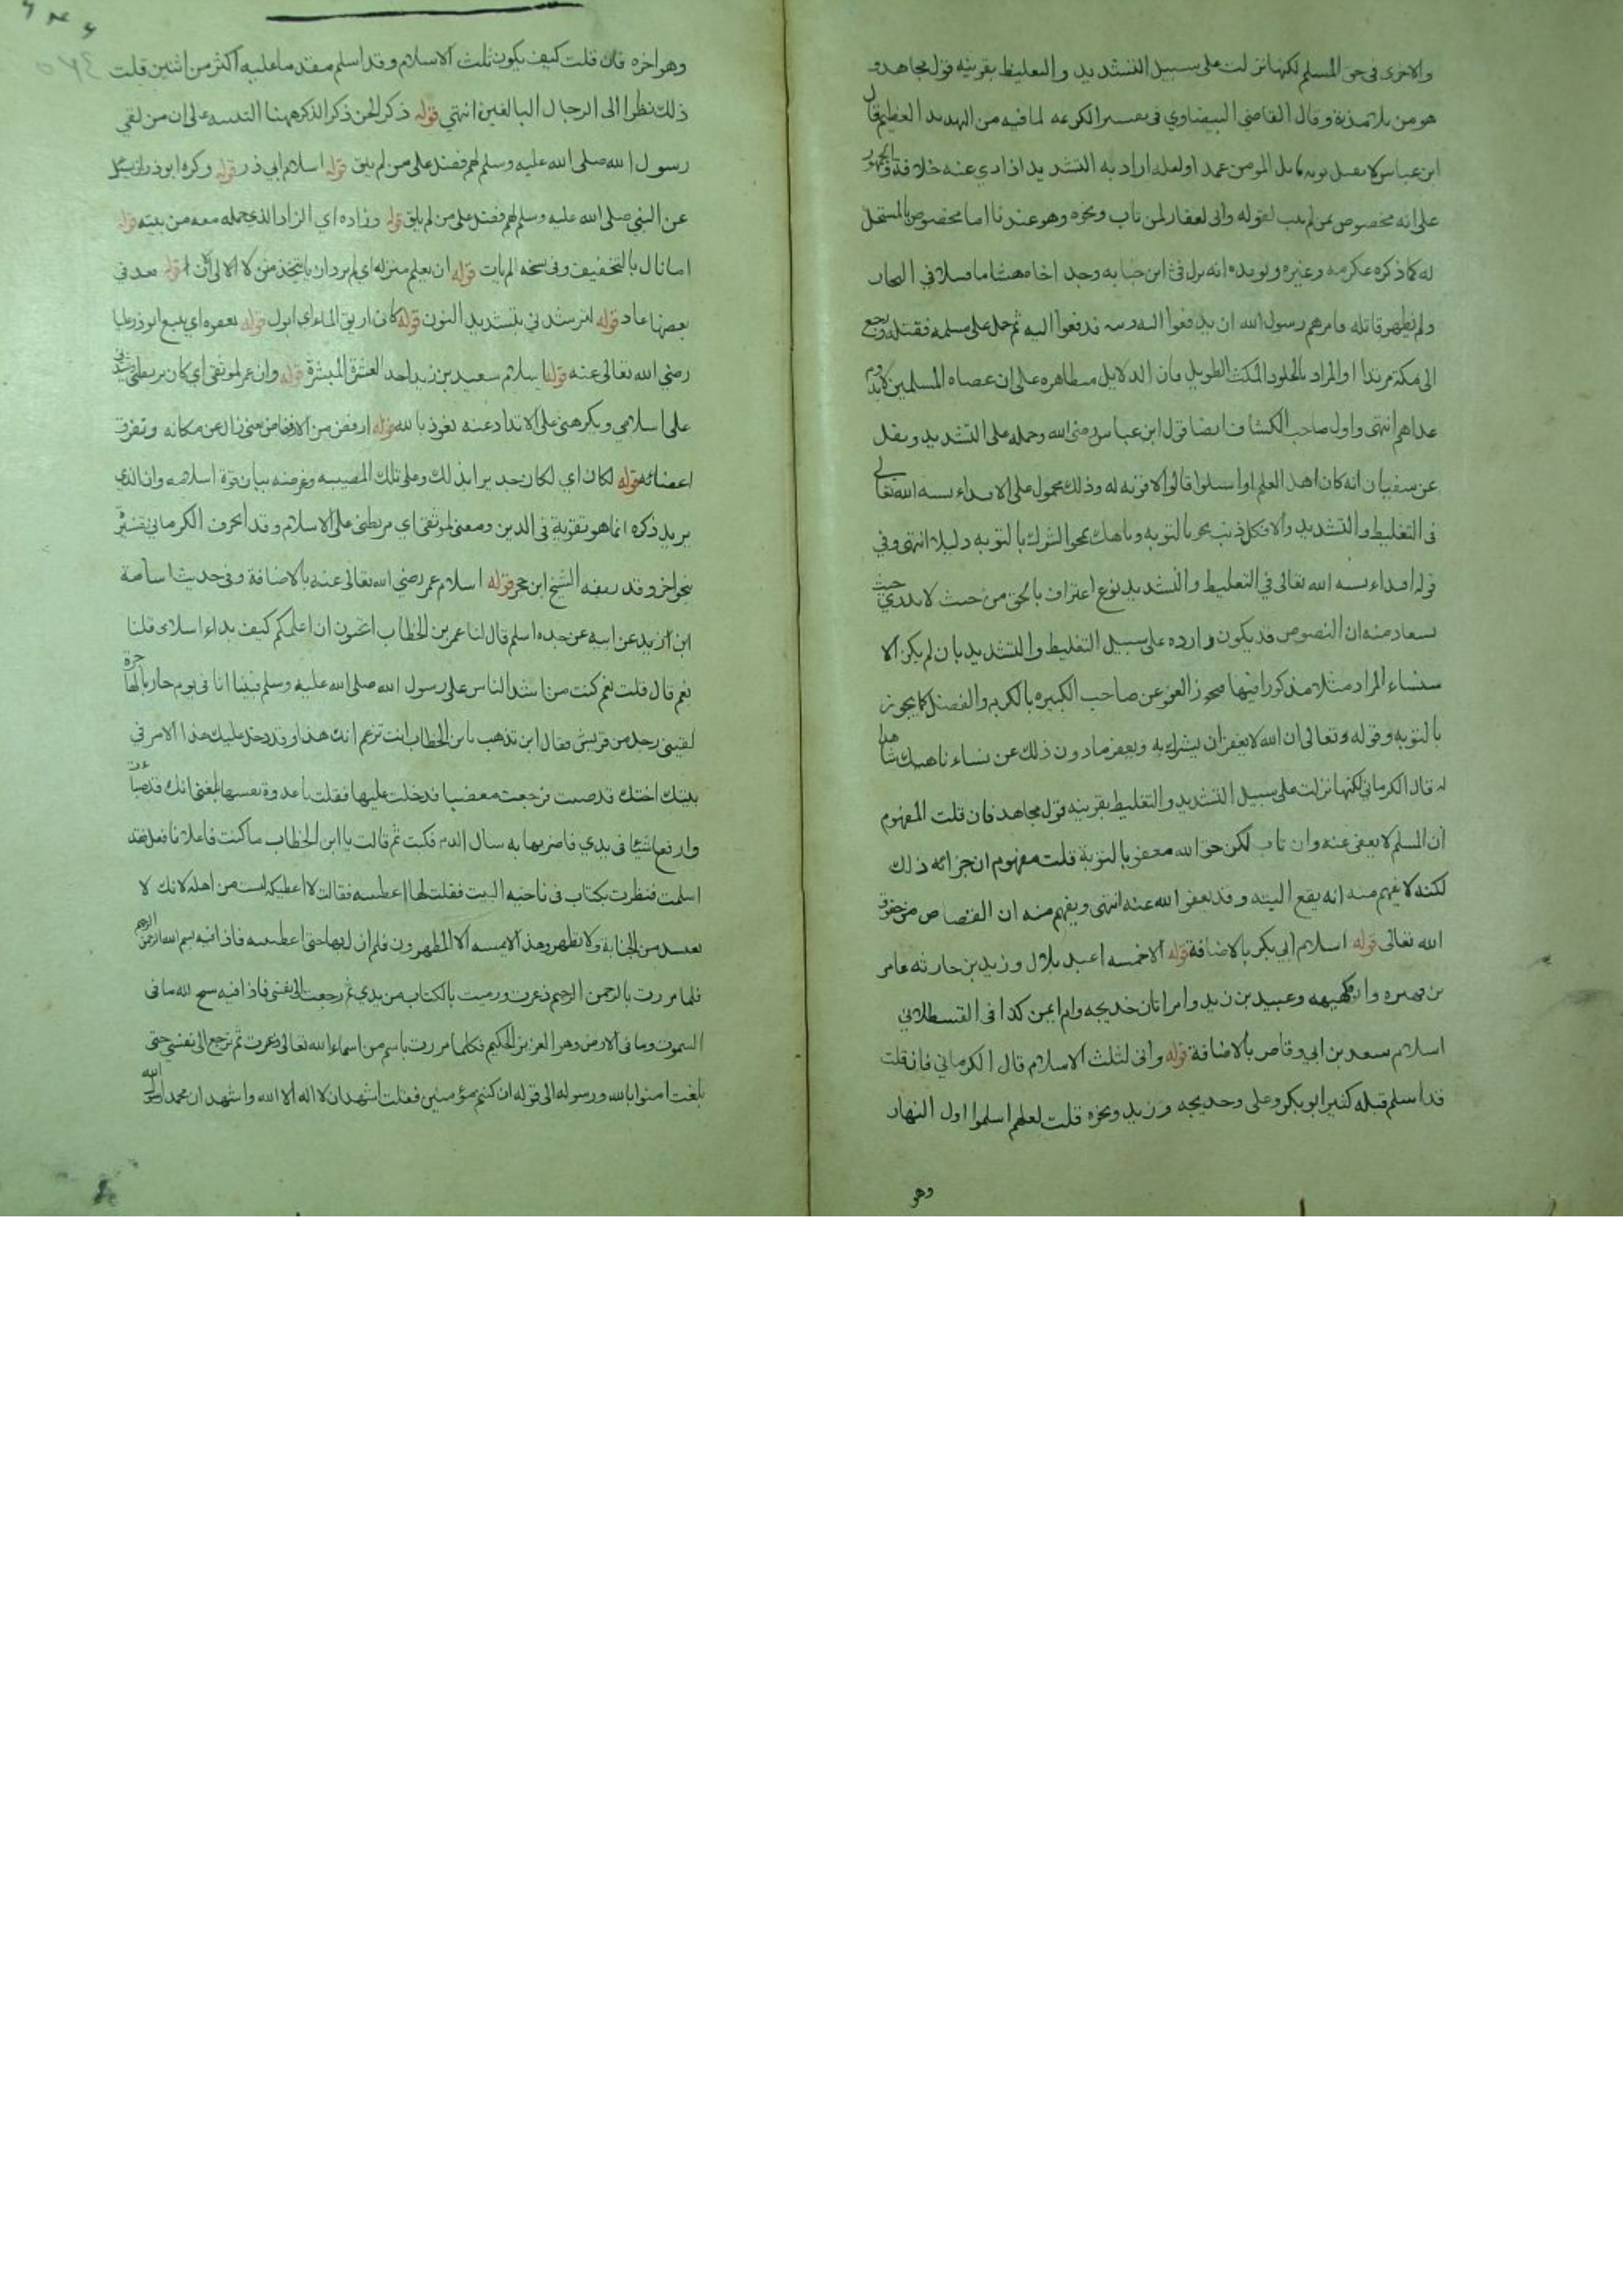 والاخرى في حق المسلم لكنها نزلت على سبيل التشديد والتغليظ بقرينة قول مجاهد و
هو من تلامذة وقال القاضي البيضاوي في تفسير الكريمه لما فيه من التهديد العظيم قال
ابن عباس لا يقبل توبه قاتل المومن عمدا ولعله اراد به التشديد اذ روي عنه خلافه والجمهور
على انه مخصوص بمن لم يتب لقوله واني لغفار لمن تاب ونحوه وهو عندنا اما مخصوص بالمستحل
له كما ذكره عكرمه وغيره ويويده انه نزل في ابن ضبابه وجد اخاه هشاما قتيلا في النجار
ولم يظهر قاتله فامرهم رسول الله ان يدفعوا اليه ديته فدفعوا اليه ثم حمل على مسلم فقتله ورجع
الى مكة مرتدا او المراد بالخلود المكث الطويل فان الدلايل متظاهره على ان عصاة المسلمين لا يدوم
عذابهم انتهى واول صاحب الكشاف ايضا قول ابن عباس رضي الله وحمله على التشديد ونقل
عن سفيان انه كان اهل العلم اذا سئلوا قالوا لا توبه له وذلك محمول على الاقتداء بسنة الله تعالى
في التغليظ والتشديد والا فكل ذنب ممحو بالتوبه وناهيك بمحو الشرك بالتوبه دليلا انتهى وفي
قوله اقتداء بسنه الله تعالى في التغليظ والتشديد نوع اعتراف بالحق من حيث لا يدري حيث
يستفاد منه ان النصوص قد يكون وارده على سبيل التغليظ والتشديد بان لم يكن الا
ستثناء المراد مثلا مذكورا فيها فيجوز العفو عن صاحب الكبيره بالكرم والفضل كما يجوز
بالتوبه وقوله وتعالى ان الله لا يغفر ان يشرك به ويغفر ما دون ذلك عن يشاء ناهيك شاهدا
له قال الكرماني لكنها نزلت على سبيل التشديد والتغليظ بقرينه قول مجاهد فان قلت المفهوم
ان المسلم لا يعفى عنه وان تاب لكن حق الله معفو بالتوبة قلت مفهومه ان جزائه ذلك
لكنه لا يفهم منه انه يقع البته وقد يعفو الله عنه انتهى ويفهم منه ان القصاص من حقوق
الله تعالى قوله اسلام ابي بكر بالاضافة قوله الا خمسه اعبد بلال وزيد بن حارثه عامر
بن فهيره وابو فكيهه وعبيد بن زيد وامراتان خديجه وام ايمن كذا في القسطلاني
اسلام سعد بن ابي وقاص بالاضافة قوله واني لثلث الاسلام قال الكرماني فان قلت
قد اسلم قبله كثير ابو بكر وعلى وخديجه وزيد ونحوه قلت لعلهم اسلموا اول النهار
وهو
وهو اخره فان قلت كيف يكون ثلث الاسلام وقد اسلم مقدما عليه اكثر من اثنين قلت
ذلك نظرا الى الرجال البالغين انتهى قوله ذكر الجن ذكر الذكر ههنا التنبيه على ان من لقي
رسول الله صلى الله عليه وسلم لهم فضل على من لم يلق قوله اسلام ابي ذر قوله وكره ابو ذر ان يسئل
عن النبي صلى الله عليه وسلم لهم فضل على من لم يلق قوله وزاده اي الزاد الذي حمله معه من بيته قوله
اما نال بالتخفيف وفي نسخه الم يات قوله ان يعلم منزله اي لم يرد ان يتخذ منزلا الا الى الآن قوله فعد في
بعضها عاد قوله لترشدني بتشديد النون قوله كاني اريق الماء اي ابول قوله يقفوه اي يتبع ابو ذر عليا
رضي الله تعالى عنه قوله اسلام سعيد بن زيد احد العشرة المبشرة قوله وان عمر لموثقي اي كان يربطني ويشدني
على اسلامي ويكرهني على الارتداد عنه نعوذ بالله قوله ارفض من الارفضاض يعني زال عن مكانه وتفرق
اعضائه قوله لكان اي لكان جديرا بذلك وعلى تلك المصيبه وغرضه بيان قوة اسلامه وان الذي
يريد ذكره انما هو تقوية في الدين ومعنى لموثقي اي مربطني على الاسلام وقد انحرف الكرماني بتفسير
نحو اخر وقد زيفه الشيخ ابن حجر قوله اسلام عمر رضي الله تعالى عنه بالاضافة وفي حديث اسامة
ابن زيد عن ابيه عن جده اسلم قال لنا عمر بن الخطاب اتحبون ان اعلمكم كيف بداء اسلامي قلنا
نعم قال قلت نعم كنت من اشد الناس على رسول الله صلى الله عليه وسلم فبينا انا في يوم حار بالهاجرة
لقيني رجل من قريش فقال ابن تذهب يا بن الخطاب انت تزعم انك هذا وقد دخل عليك هذا الامر في
بيتك اختك قد صبت فرجعت مغضبا فدخلت عليها فقلت يا عدوة نفسها بلغني انك قد صبات
وارفع شيئا في يدي فاضربها به سال الدم فبكت ثم قالت يا ابن الخطاب ما كنت فاعلا فافعل فقد
اسلمت فنظرت بكتاب في ناحيه البيت فقلت لها اعطينيه فقالت لا اعطيكه لست من اهله لانك لا
تغتسل من الجنابة ولا تطهر وهذا لا يمسه الا المطهرون فلم ازل بها حتى اعطتنيه فاذا فيه بسم الله الرحمن الرحيم
فلما مررت بالرحمن الرحيم ذعرت ورميت بالكتاب من يدي ثم رجعت الى نفسي فاذا فيه سبح لله ما في
السموت وما في الارض وهو العزيز الحكيم فكلما مررت باسم من اسماء الله تعالى ذعرت ثم ترجع الى نفسي حتى
بلغت امنوا بالله ورسوله الى قوله ان كنتم مؤمنين فقلت اشهد ان لا اله الا الله واشهد ان محمدا رسول الله